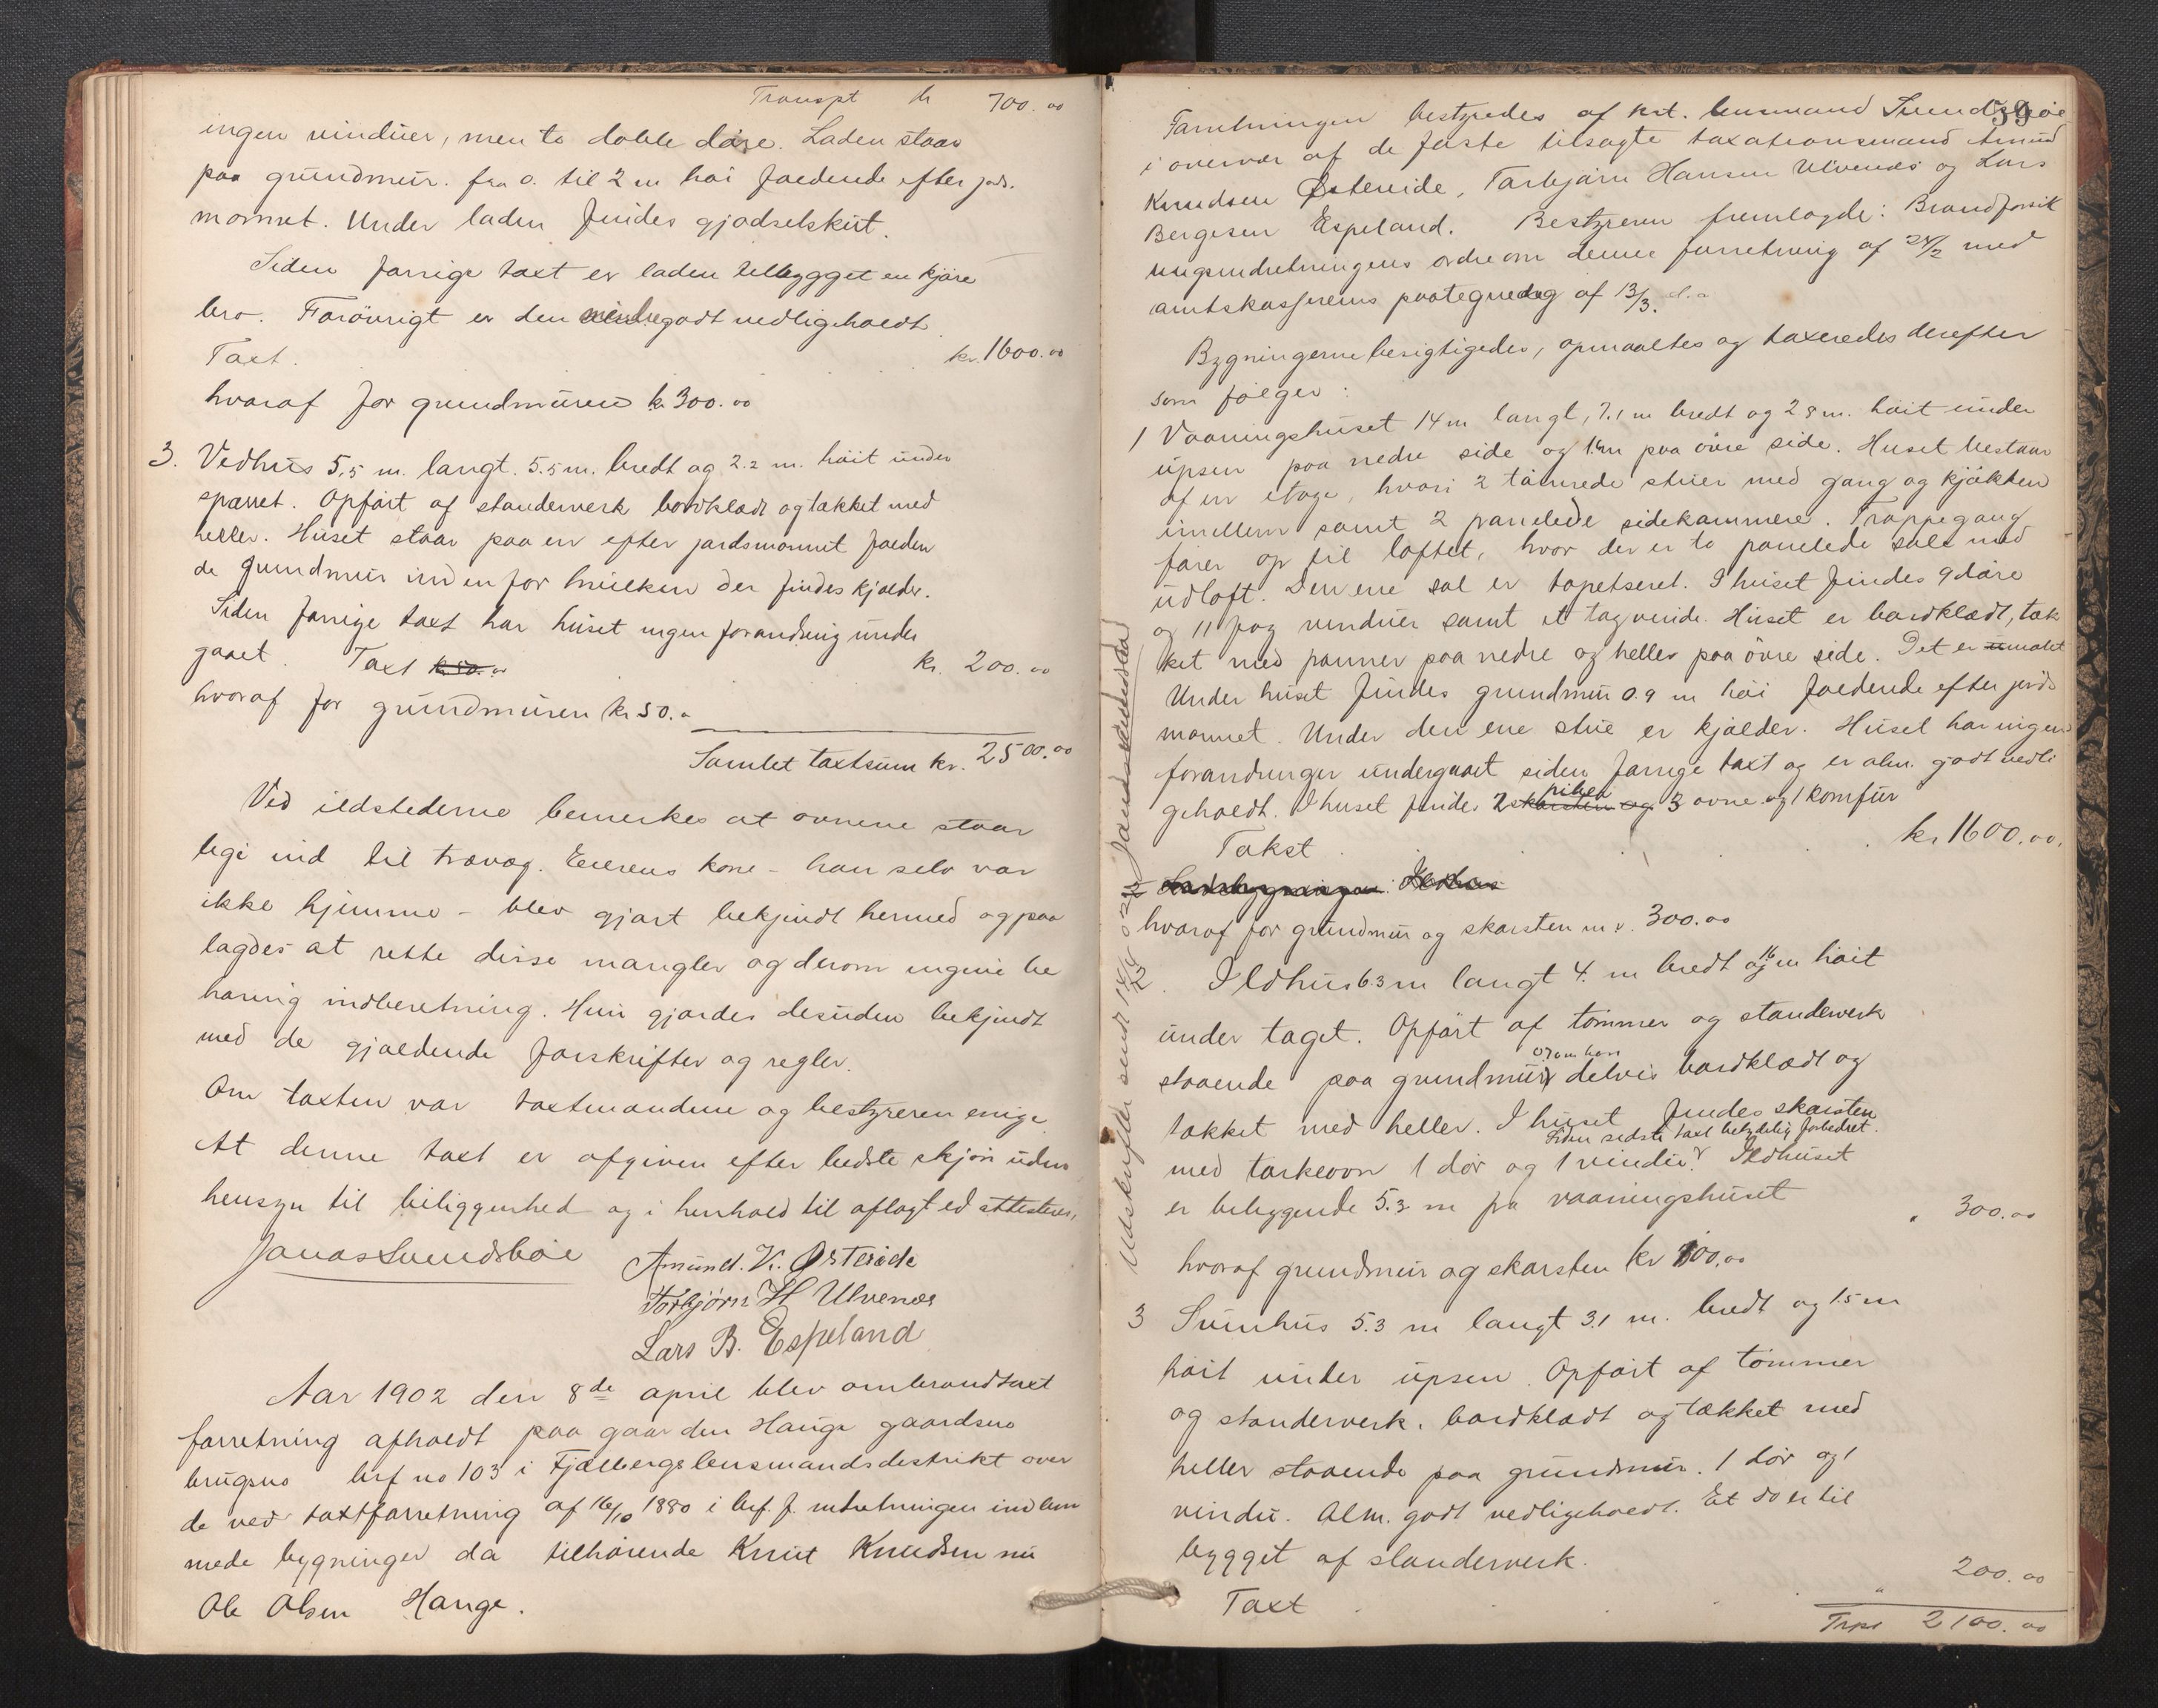 Transpt kr 700.00
ingen vinduer, men to doble døre. Laden staar
paa grundmur. fra 0. til 2 m høi faldende efter jords-
monnet. Under laden findes gjødselskut.
Siden forrige taxt er laden tilbygget en kjøre
bro. Forøvrigt er den mindre godt vedligeholdt
Taxt. kr. 1600.00
hvoraf for grundmuren kr 300.00
3. Vedhus 5,5 m. langt. 5.5 m. bredt og 2.2 m. høit under
sparret. Opført af standerverk bordklædt og tækket med
heller. Huset staar paa en efter jordsmonnet falden
de grundmur indenfor hvilken der findes kjælder.
Siden forrige taxt har huset ingen forandring under
gaaet. Taxt kr 50.00 kr. 200.00
hvoraf for grundmuren kr 50.-
Samlet taxtsum kr. 2500.00
Ved ildstederne bemerkes at ovnene staar
lige ind til trævæg. Eierens kone - han selv var
ikke hjemme - blev gjort bekjendt hermed og paa
lagdes at rette disse mangler og derom ingive be
høring indberetning. Hun gjordes desuden bekjendt
med de gjældende forskrifter og regler.
Om taxten var taxtmændene og bestyreren enige
At denne taxt er afgiven efter bedste skjøn uden
hensyn til beliggenhed og i henhold til aflagt ed attesteres,
Jonas Svendsbøe Amund. K. Østeride
Torbjørn H Ulvenes
Lars B. Espeland
Aar 1902 den 8de april blev ombrandtaxt
forretning afholdt paa gaarden Hauge gaardsno
brugsno brf no 103 i Fjelbergs lensmandsdistrikt over
de ved taxtforretning af 16/10 1880 i brf. f. indretningen indlem
mede bygninger da tilhørende Knut Knudsen nu
Ole Olsen Hauge.
59
Forretningen bestyredes af kst. lensmand Svendsbøe
i overvær af de faste tilsagte taxationsmænd Amund
Knudsen Østereide, Torbjørn Hansen Ulvenes og Lars
Bergesen Espeland. Bestyreren fremlagde: Brandforsik
ringsindretningens ordre om denne forretning af 24/2 med
amtskasserens paategnedeg af 13/3. d.a
Bygningerne besigtigedes, opmaaltes og taxeredes derefter
som følger:
1 Vaaningshuset 14 m langt, 7.1 m bredt og 2 8 m. høit under
upsen paa nedre side og 1.4m paa øvre side. Huset bestaar
af en etage, hvori 2 tømrede stuer med gang og kjøkken
imellem samt 2 panelede sidekammere. Trappegang
fører op til loftet, hvor der er to panelede sale med
udloft. Den ene sal er tapetseret. I huset findes 9 døre
og 11 fag vinduer samt et tagvindu. Huset er bordklædt, tæk
ket med panner paa nedre og heller paa øvre side. Det er umalet
Under huset findes grundmur 0.9 m høi faldende efter jords
monnet. Under den ene stue er kjælder. Huset har ingen
forandringer undergaaet siden forrige taxt og er alm. godt vedli
geholdt. I huset findes 2 skorsten og piber 3 ovne og 1 komfur
Takst kr 1600.00.
2 Ladebygningen Ildhus
hvoraf for grundmur og skorsten m v. 300.00
2. Ildhus 6.3 m langt 4. m bredt og 16 m høit
under taget. Opført af tømmer og standerverk
staaende paa grundmur 0.7 om høi delvis bordklædt og
tækket med heller. I huset findes skorsten
med tørkeovn 1 dør og 1 vindu. Siden sidste taxt betydelig forbedret. Ildhuset
er beliggende 5.3 m fra vaaningshuset " 300.00
hvoraf grundmur og skorsten kr 100.00
3 Svinhus 5.3 m langt 3.1 m. bredt og 1.5 m
høit under upsen. Opført af tømmer
og standerverk. bordklædt og tækket med
heller staaende paa grundmur. 1 dør og 1
vindu. Alm. godt vedligeholdt. Et do er til
bygget af standerverk.
Taxt " 200.00
Trps 2100.00
Udskrifter sendt 14/4 02